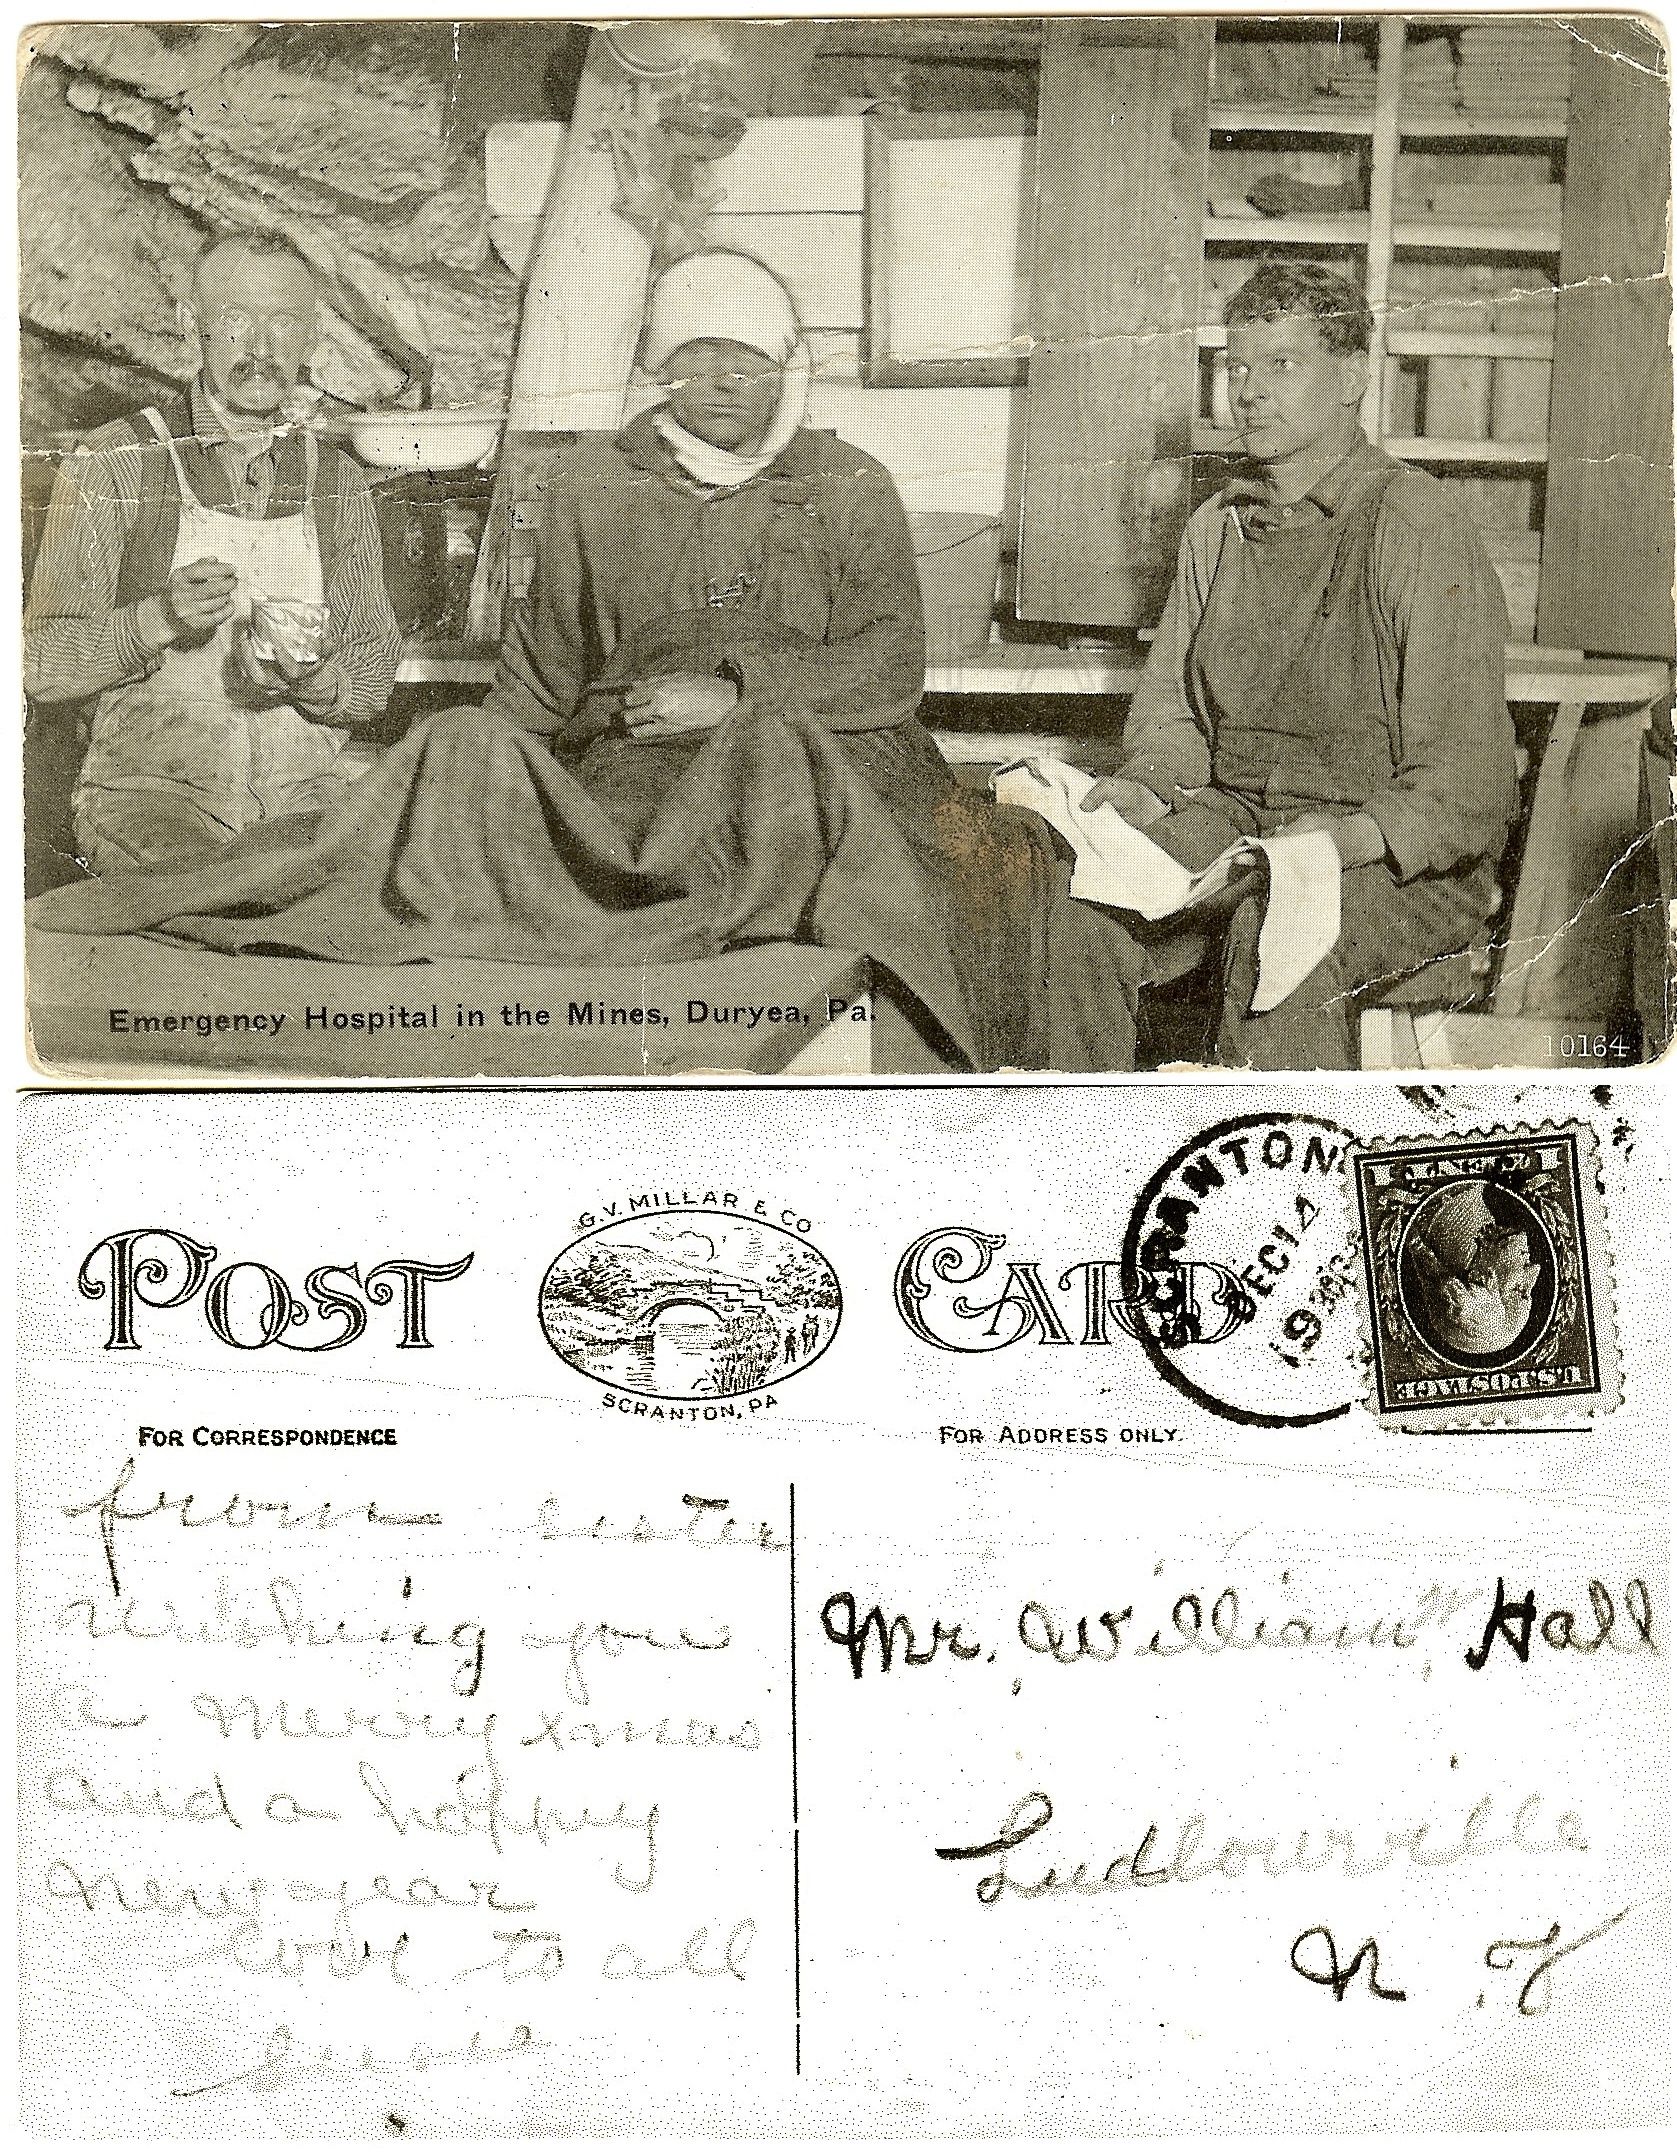 Emergency Hospital in the Mines, Duryea, Pa.
10164
POST CARD
G. V. MILLAR & CO
SCRANTON, PA
SCRANTON
DEC 14
19
1 CENT 1
U.S. POSTAGE
FOR CORRESPONDENCE
FOR ADDRESS ONLY.
from sister
wishing you
a merry xmas
and a happy
New year
love to all
Mr. William Hall
Ludlowville
N. Y